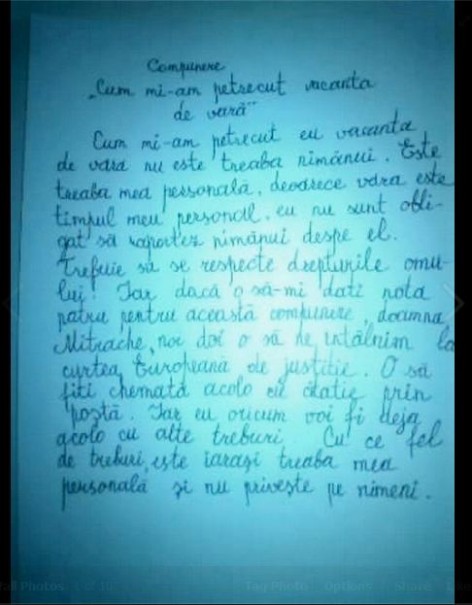 Compunere
„Cum mi-am petrecut vacanta
de vară"
Cum mi-am petrecut eu vacanta
de vară nu este treaba nimănui. Este
treaba mea personală, deoarece vara este
timpul meu personal, eu nu sunt obli-
gat să raportez nimănui despe el.
Trebuie să se respecte drepturile omu-
lui! Iar dacă o să-mi dati nota
patru pentru această compunere, doamna
Mitrache, noi doi o să ne întâlnim la
curtea Europeană de justitie. O să
fiti chemată acolo cu citatie prin
poștă. Iar eu oricum voi fi deja
acolo cu alte treburi. Cu ce fel
de treburi, este iarași treaba mea
personală și nu privește pe nimeni.
Tag Photo Options Share